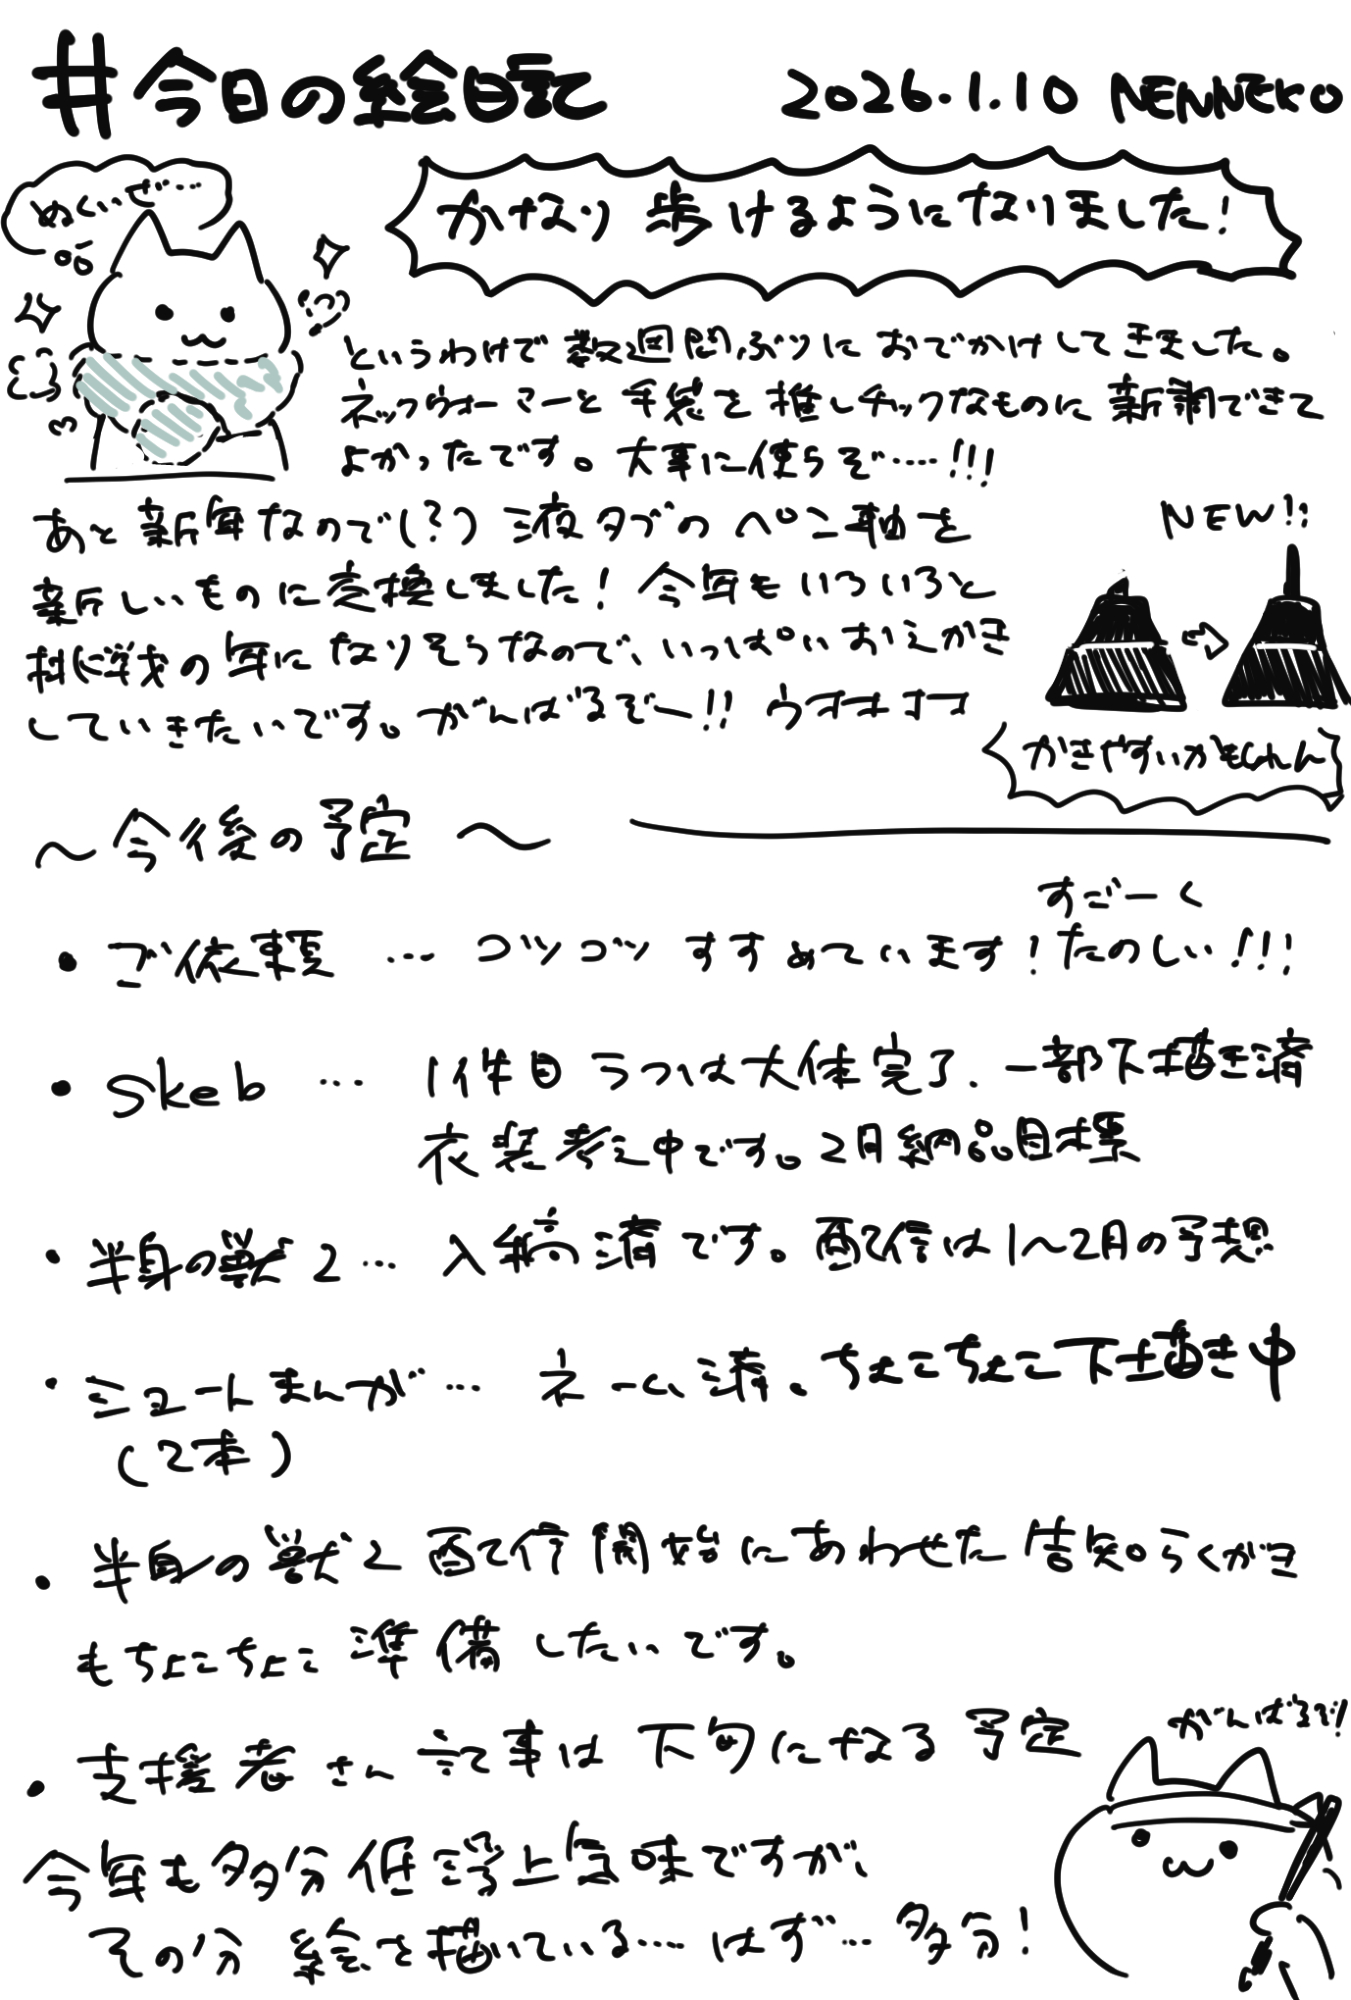 #今日の絵日記 2026.1.10 NENNEKO
ぬくいぜ…
かなり歩けるようになりました!
というわけで数週間ぶりにおでかけしてきました。
ネックウォーマーと手袋を推しチックなものに新調できて
よかったです。大事に使うぞ……!!!
あと新年なので(?)液タブのペン軸を
新しいものに交換しました!今年もいろいろと
挑戦の年になりそうなので、いっぱいおえかき
していきたいです。がんばるぞー!! ウオオオオ
NEW!!
かきやすいかもしれん
〜今後の予定〜
・ご依頼 … コツコツすすめています!すごーくたのしい!!!
・Skeb … 1件目ラフは大体完了、一部下描き済
衣装考え中です。2月納品目標
・半身の獣2… 入稿済です。配信は1〜2月の予想
・ショートまんが… ネーム済、ちょこちょこ下描き中
(2本)
・半身の獣2配信開始にあわせた告知らくがき
もちょこちょこ準備したいです。
・支援者さん記事は下旬になる予定
がんばるぞ!
今年も多分低浮上気味ですが、
その分絵を描いている…はず…多分!